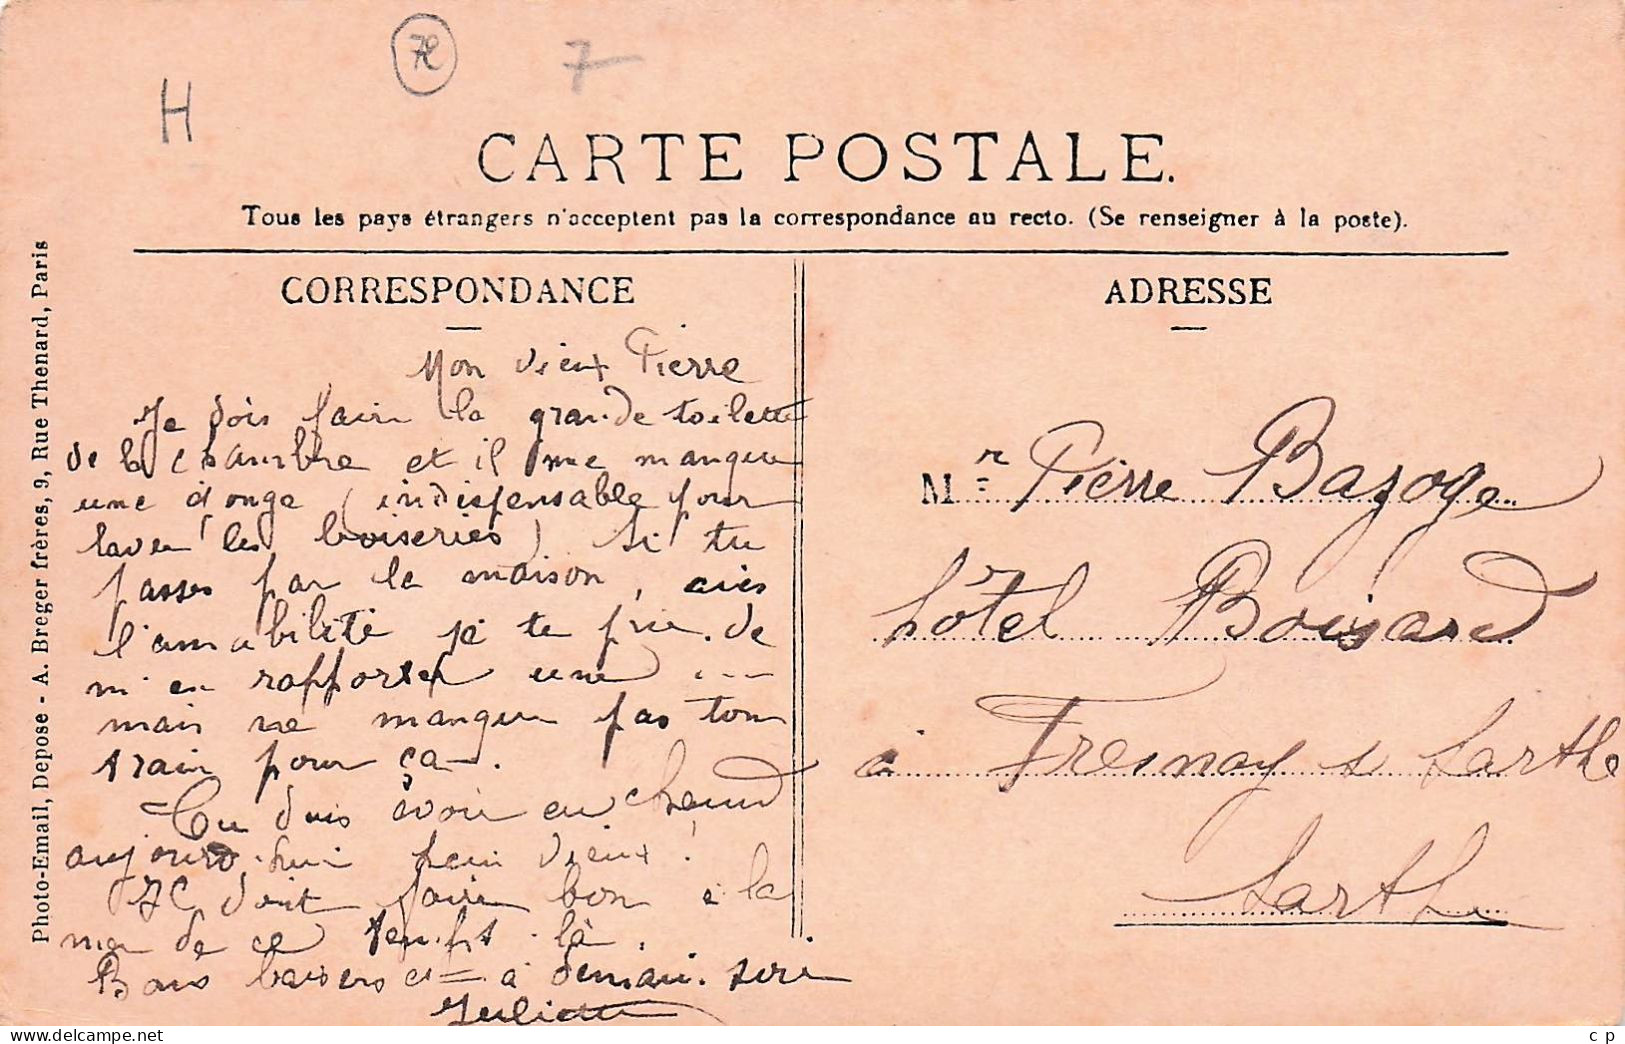 H
72
7
CARTE POSTALE.
Tous les pays étrangers n'acceptent pas la correspondance au recto. (Se renseigner à la poste).
CORRESPONDANCE
Mon vieux Pierre
Je dois faire la grande toilette
de la chambre et il me manque
une éponge (indispensable pour
laver les boiseries) Si tu
passes par la maison, aies
l'amabilité je te prie de
m'en rapporter une ...
mais ne manque pas ton
train pour ça.
Tu dois avoir eu chaud
aujourd'hui hein vieux!
Il doit faire bon à la
mer de ce temps là.
Bons baisers et = à demain soir
Juliette
ADRESSE
Mr Pierre Bazoge
hôtel Boisard
à Fresnay s Sarthe
Sarthe
Photo-Email, Depose - A. Breger frères, 9, Rue Thenard, Paris
c p